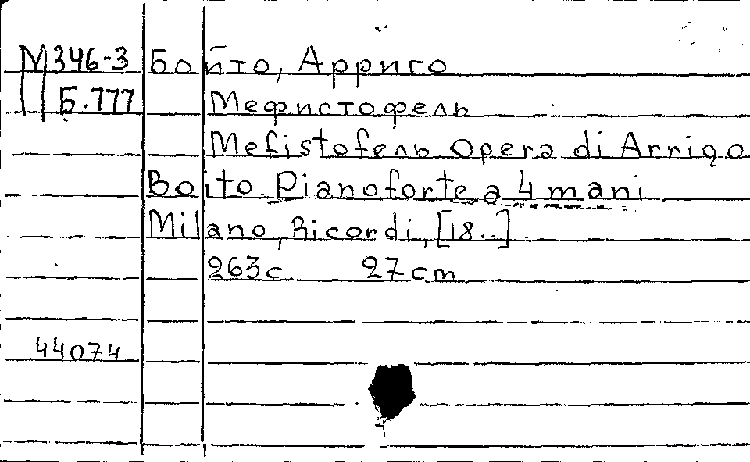 М346-3 Бойто, Арриго
Б.777 Мефистофель
Mefistofель Opera di Arrigo
Boito Pianoforte a 4 mani
Milano, Ricordi, [18..]
263с 27 cm
44074